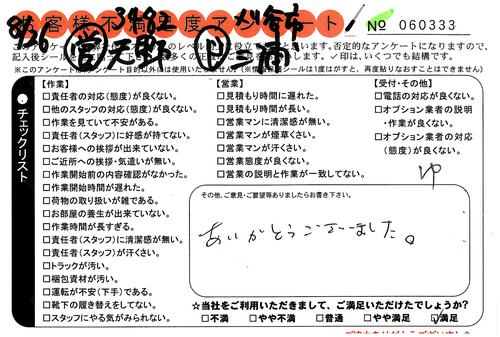 お客様不満足度アンケート
3482
刈谷市
No 060333
8/30 営 天野
このアンケートは
のレベル
に役立
と思います。否定的なアンケートになりますので、
記入後シールを
多くの
✓印は、いくつでも結構です。
(※このアンケートは
アンケート目的以外には使用いたしません)
(情報保護シールは1度はがすと、再度貼りなおすことはできません)
チェックリスト
【作業】
□責任者の対応(態度)が良くない。
□他のスタッフの対応(態度)が良くない。
□作業を見ていて不安がある。
□責任者(スタッフ)に好感が持てない。
□お客様への挨拶が出来ていない。
□ご近所への挨拶・気遣いが無い。
□作業開始前の内容確認がなかった。
□作業開始時間が遅れた。
□荷物の取り扱いが雑である。
□お部屋の養生が出来ていない。
□作業時間が長すぎる。
□責任者(スタッフ)に清潔感が無い。
□責任者(スタッフ)が汗くさい。
□トラックが汚い。
□梱包資材が汚い。
□運転が不安(下手)である。
□靴下の履き替えをしてない。
□スタッフにやる気がみられない。
【営業】
□見積もり時間に遅れた。
□見積もり時間が長い。
□営業マンに清潔感が無い。
□営業マンが煙草くさい。
□営業マンが汗くさい。
□営業態度が良くない。
□営業の説明と作業が一致してない。
【受付・その他】
□電話の対応が良くない。
□オプション業者の説明
・作業が良くない。
□オプション業者の対応
(態度)が良くない。
その他、ご意見・ご要望等ありましたらお書き下さい。
ありがとうございました。
☆当社をご利用いただきまして、ご満足いただけたでしょうか?
□不満 □やや不満 □普通 □やや満足 ☑満足